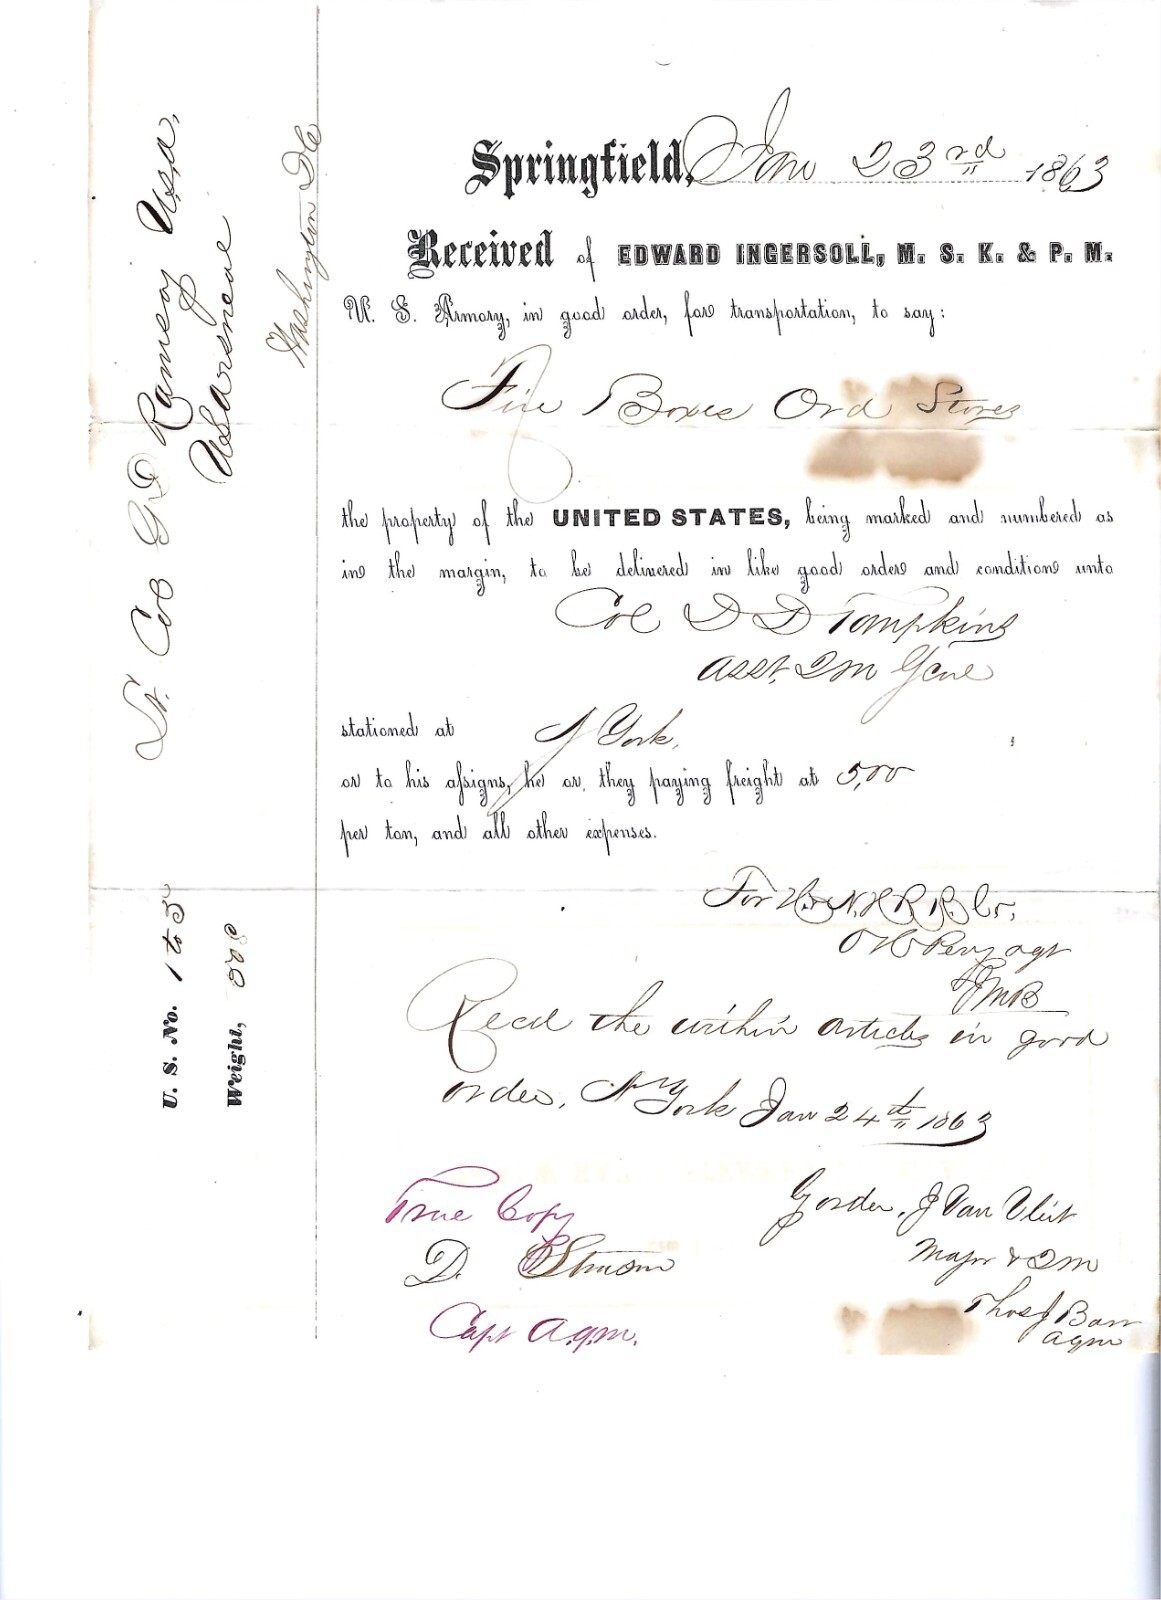 Springfield, Jan 23rd 1863
Received of EDWARD INGERSOLL, M. S. K. & P. M.
U. S. Armory, in good order, for transportation, to say:
Five Boxes Ord Stores
the property of the UNITED STATES, being marked and numbered as
in the margin, to be delivered in like good order and condition unto
Col D D Tompkins
Asst. QM Genl
stationed at N York,
or to his assigns, he or they paying freight at 5,00
per ton, and all other expenses.
For H. & N. H. R. R. Co.
O H Perry agt
Recd the within articles in good
order, N York Jan 24th 1863
True Copy
D.
Capt A.q.m.
J Van Vliet
Major & QM
Thos J
aqm
Lt. Col G D Ramsay Usa,
US Arsenal
Washington DC
U. S. No. 1 to 5
Weight,